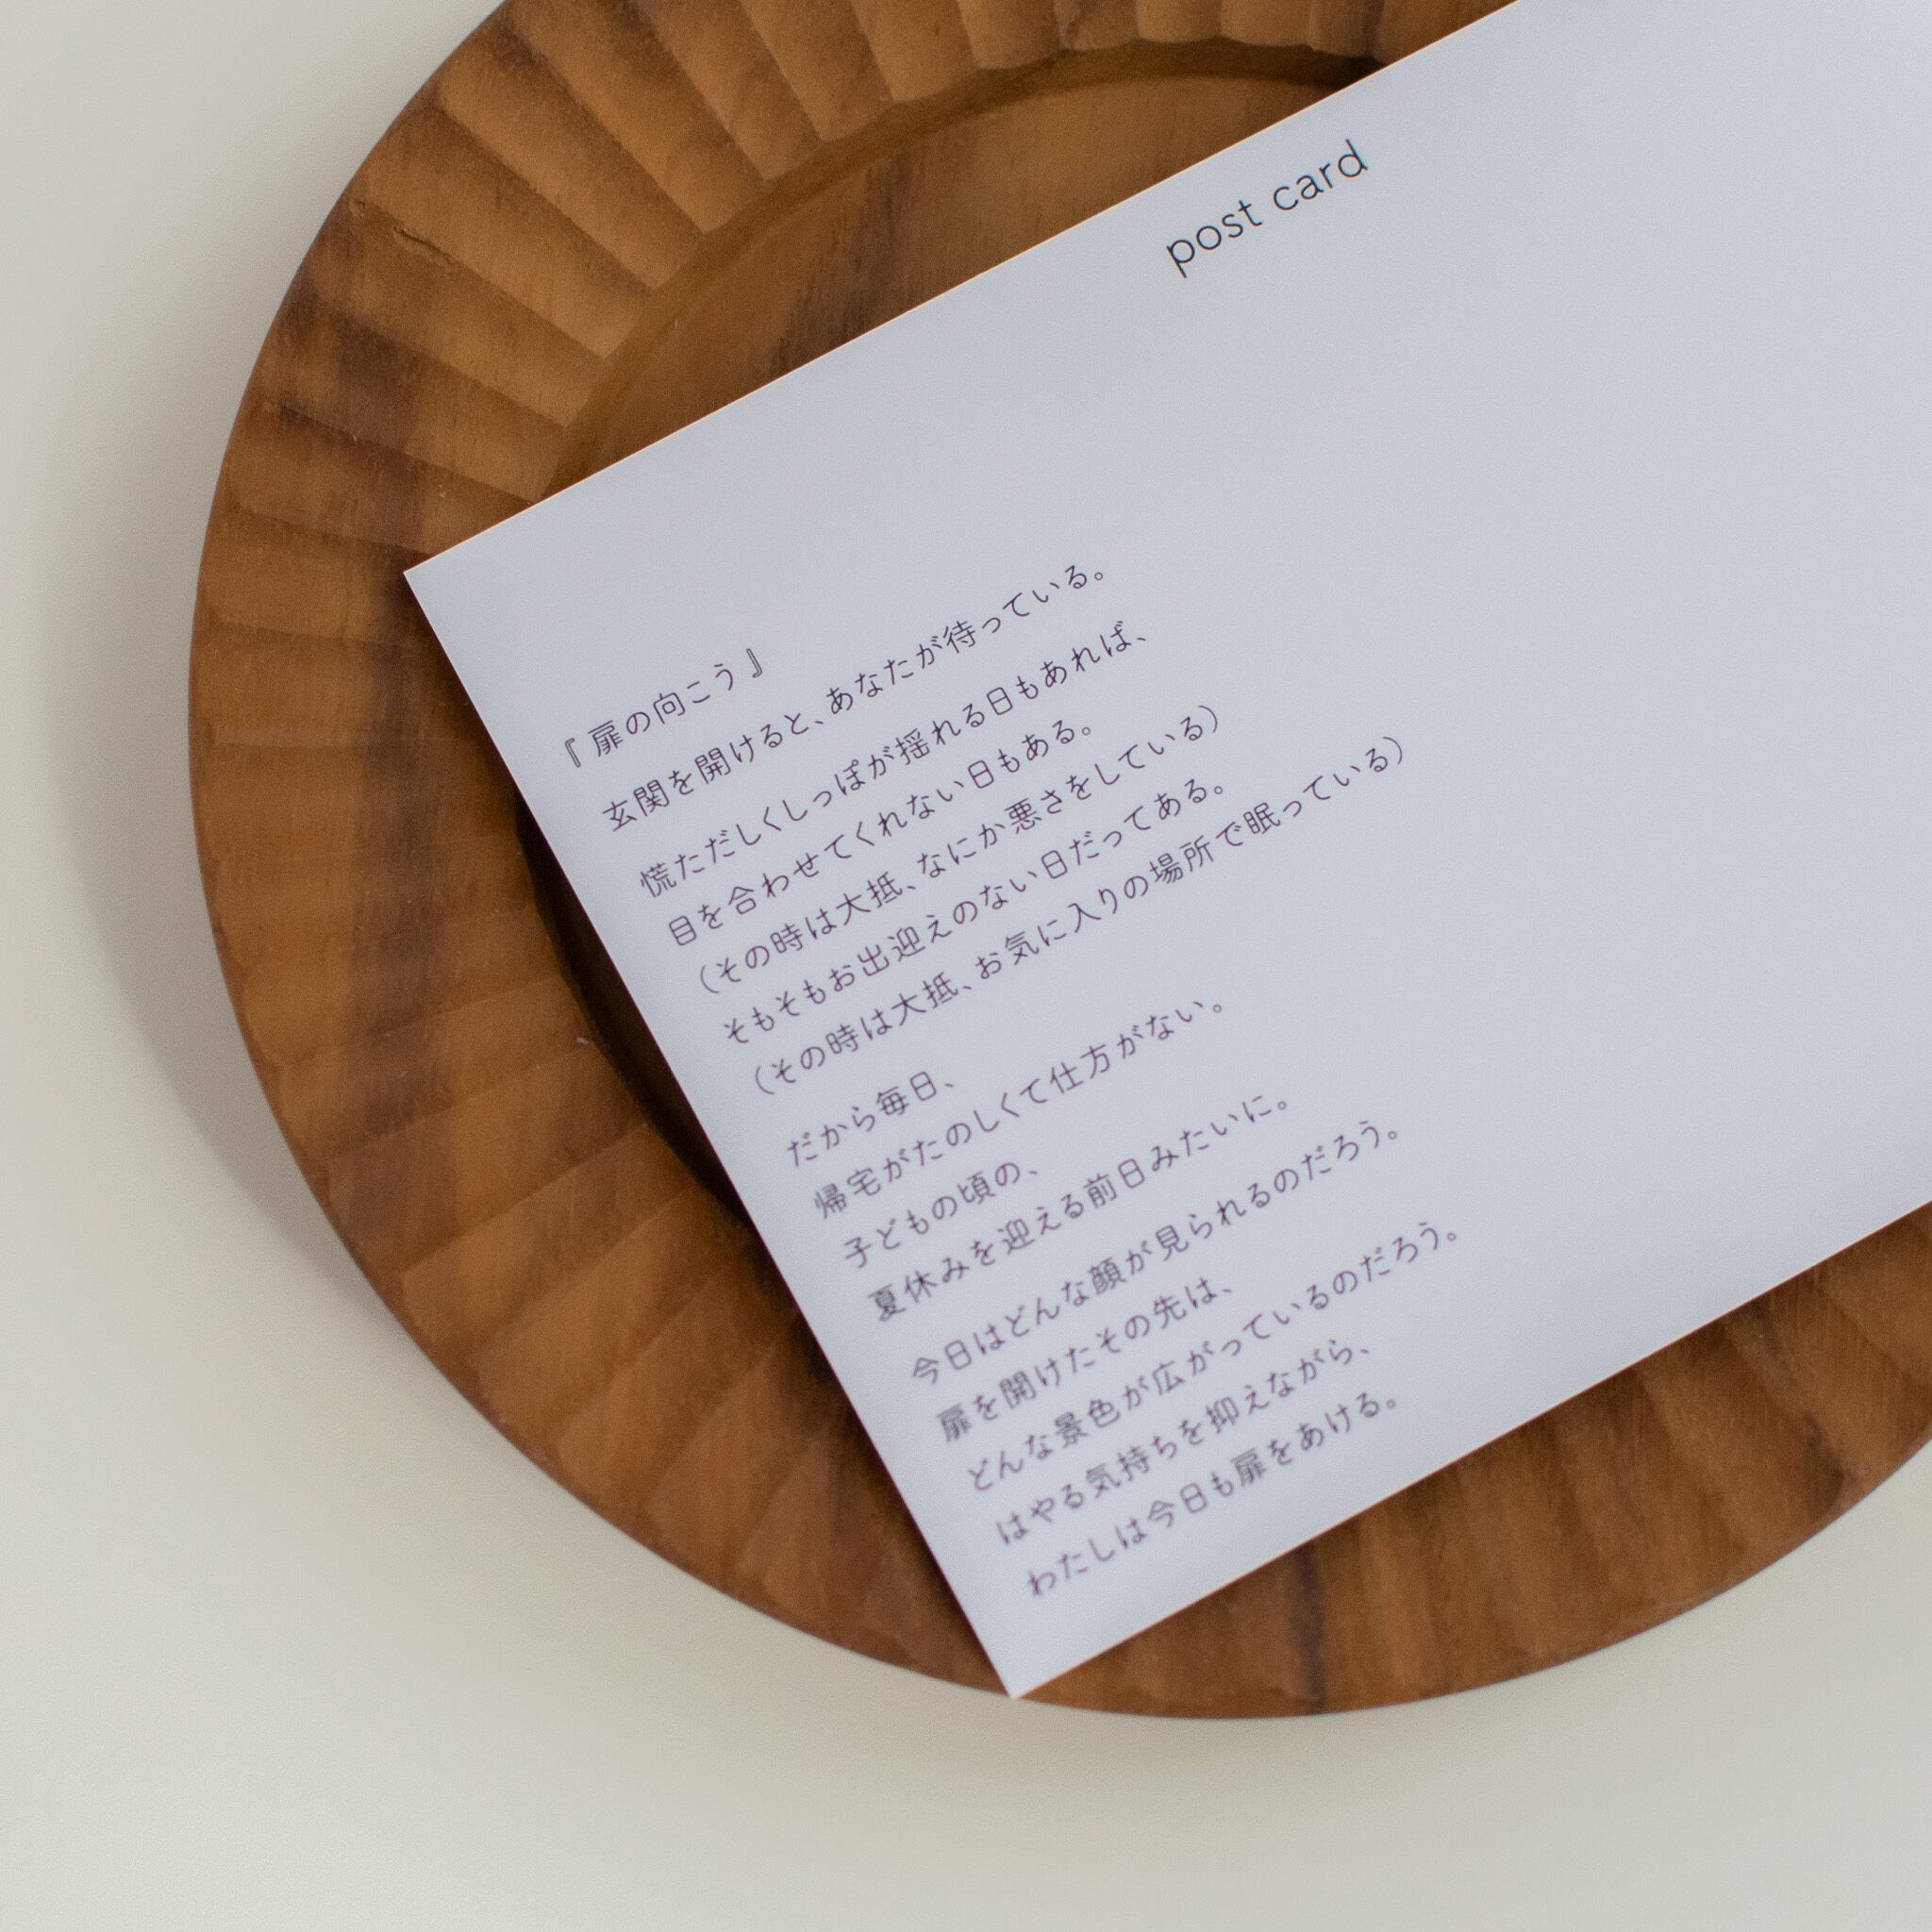 post card
『 扉の向こう 』
玄関を開けると、あなたが待っている。
慌ただしくしっぽが揺れる日もあれば、
目を合わせてくれない日もある。
（その時は大抵、なにか悪さをしている）
そもそもお出迎えのない日だってある。
（その時は大抵、お気に入りの場所で眠っている）
だから毎日、
帰宅がたのしくて仕方がない。
子どもの頃の、
夏休みを迎える前日みたいに。
今日はどんな顔が見られるのだろう。
扉を開けたその先は、
どんな景色が広がっているのだろう。
はやる気持ちを抑えながら、
わたしは今日も扉をあける。